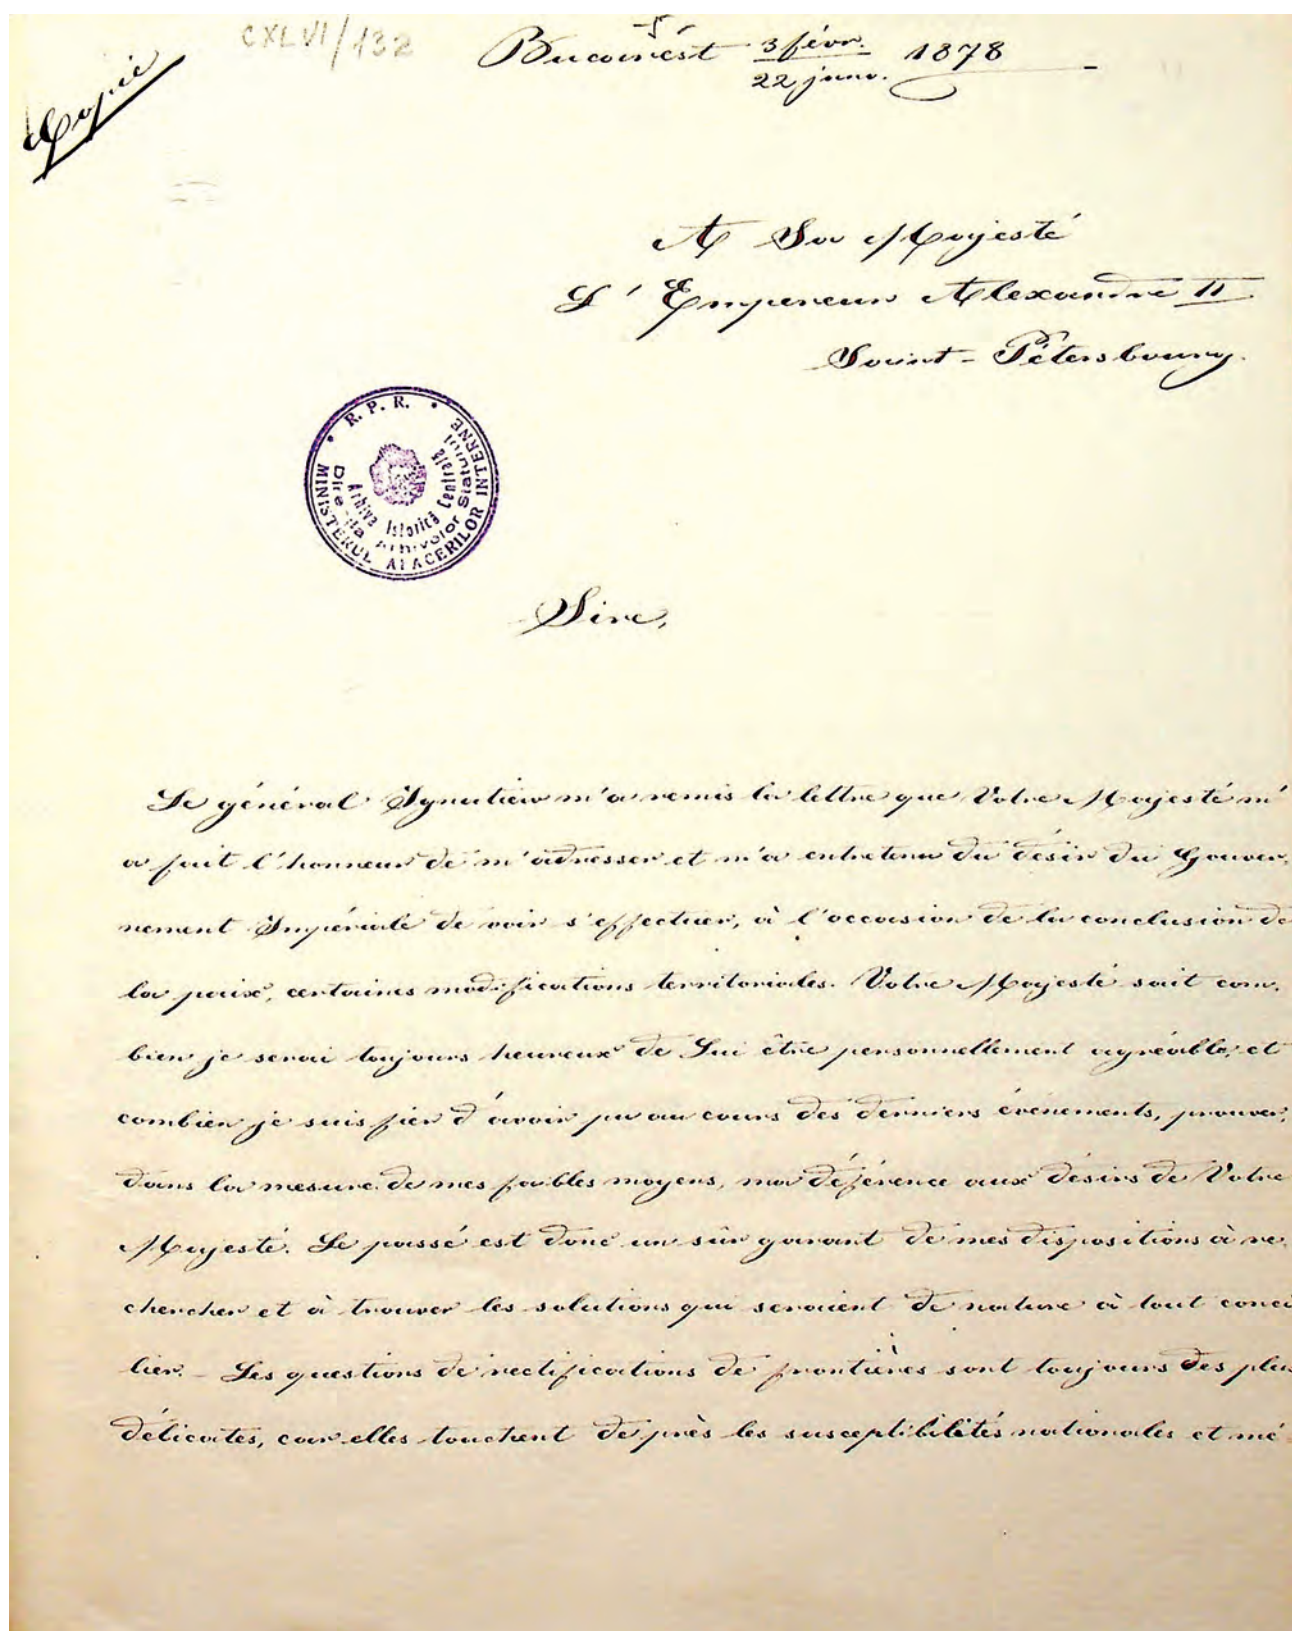 CXLVI/132
Copie
Bucarest 3 févr. 1878
22 janv.
A Sa Majesté
L'Empereur Alexandre II
Saint-Pétersbourg.
• R. P. R. •
MINISTERUL AFACERILOR INTERNE
Direcția Arhivelor Statului
Arhiva Istorică Centrală
Sire,
Le général Ignatiew m'a remis la lettre que Votre Majesté m'
a fait l'honneur de m'adresser et m'a entretenu du désir du Gouver-
nement Impériale de voir s'effectuer, à l'occasion de la conclusion de
la paix, certaines modifications territoriales. Votre Majesté sait com-
bien je serai toujours heureux de Lui être personnellement agréable, et
combien je suis fier d'avoir pu au cours des derniers événements, prouver,
dans la mesure de mes faibles moyens, ma déférence aux désirs de Votre
Majesté. Le passé est donc un sûr garant de mes dispositions à re-
chercher et à trouver les solutions qui seraient de nature à tout conci
lier. - Les questions de rectifications de frontières sont toujours des plus
délicates, car elles touchent de près les susceptibilités nationales et mé-